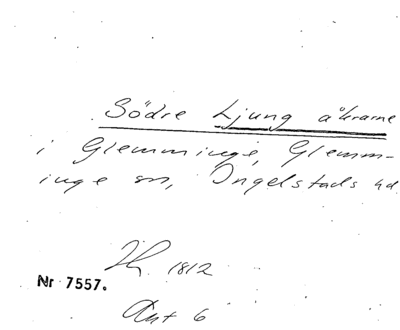 Södre Ljung åkrarne
i Glemminge, Glemm-
inge sn, Ingelstads hd.
1812
Nr 7557.
Akt 6